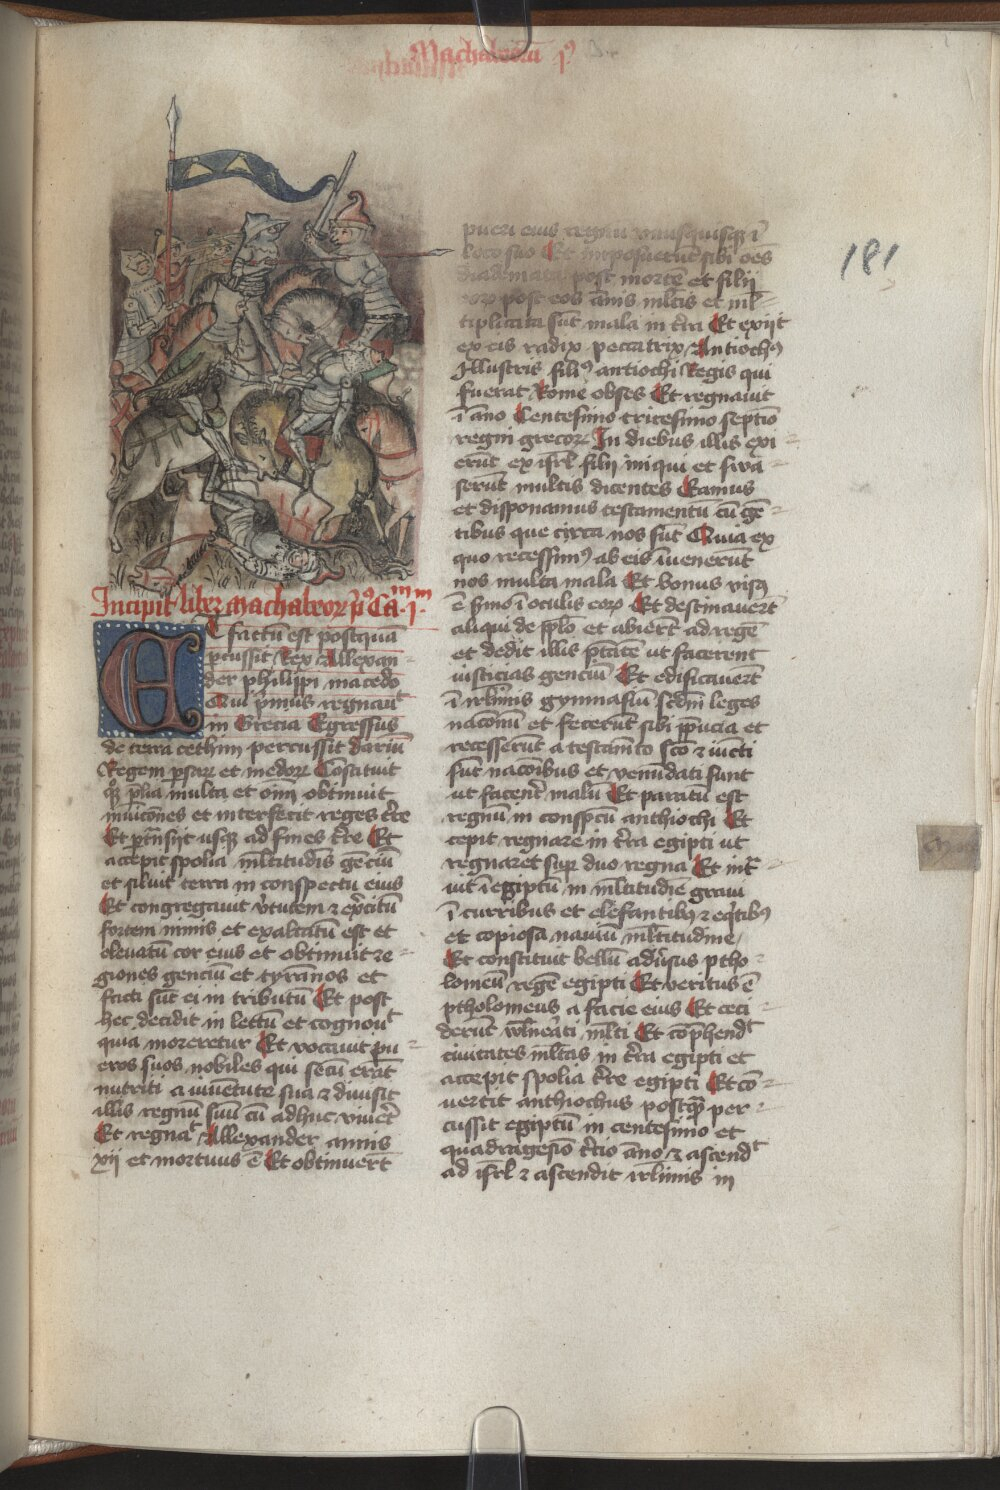 Machabeoꝝ I⁹
181
Incipit liber machabeoꝝ p̄⁹ Ca.m̄ .i.m̄
Et factū est postquā
ꝑcussit Rex Allexan-
der philippi macedo
Qui p̄mus regnauit
in Grecia Egressus
de terra cethim percussit dariū
Regem ꝑsaꝝ et medoꝝ Cōstituit
p̄lia multa et oīm obtinuit
municōnes et interfecit reges t̄re
Et ꝑtn̄siit usqꝫ ad fines t̄re Et
accepit spolia mltitudīs gēciū
et siluit terra in conspectu eius
Et congregauit v̄tutem ⁊ ex̄citū
fortem nimis et exaltatū est et
eleuatū cor eius et obtinuit re-
giones genciū et tyrānos et
facti sūt ei in tributū Et post
hec decidit in lectū et cognouᵗ
quia moreretur Et vocauit pu-
eros suos nobiles qui secū erāt
nutriti a iuuētute sua ⁊ diuisit
illis regnū suū cū adhuc viuēt
Et regnaᵗ Allexander annis
xij et mortuus ē Et obtinuerūt
pueri eius regnū vnusquisqꝫ ī
loco suo Et imposuerūt sibi oēs
diademata post mortē et filij
eoꝝ post eos ānis mltis et ml-
tiplicata sūt mala in t̄ra Et exijt
ex eis radix peccatrix Antioch⁹
Illustris fili⁹ antiochi Regis qui
fuerat Rome obses Et regnauit
ī āno Centesimo tricesimo septīo
regni grecoꝝ In diebus illis exi-
erūt ex isrl̄ filij iniqui et sua-
serūt multis dicentes Eamus
et disponamus testamentū cū gē-
tibus que circa nos sūt Quia ex
quo recessim⁹ ab eis īuenerūt
nos multa mala Et bonus visꝰ
ē ẜmo ī oculis eoꝝ Et destinauerūt
aliqui de pplo et abierūt ad regē
et dedit illis ptātē ut facerent
iusticias genciū Et edificauerūt
ī irlīmis gymnasiū scdm̄ leges
nacōnū et fecerūt sibi p̄pucia et
recesserūt a testam̄to scō ⁊ iūcti
sūt nacōnibus et venūdati sunt
ut facerēt malū Et paratū est
regnū in conspc̄tū anthiochi Et
cepit regnare in t̄ra egipti ut
regnaret suꝑ duo regna Et int̄-
uit ī egiptū in mltitudīe graui
ī curribus et elefantibꝫ ⁊ eq̄tibꝫ
et copiosa nauiū mltitudine
Et constituit bellū adūsus ptho-
lomeū regē egipti Et veritus ē
ptholomeus a facie eius Et ceci-
derūt vlnerati mlti Et cōp̄hendᵗ
ciuitates mltas in t̄ra egipti et
accepit spolia t̄re egipti Et cō-
uertit anthiochus postqꝫ per-
cussit egiptū in centesimo et
quadragesīo t̄cio āno ⁊ ascendᵗ
ad isrl̄ ⁊ ascendit irlīmis in